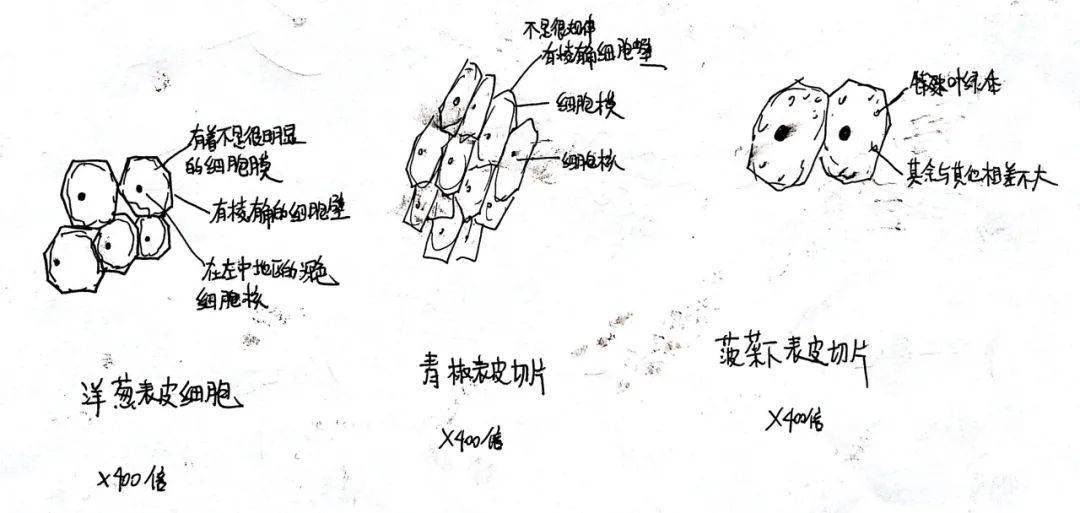 有着不是很明显
的细胞膜
有棱有角的细胞壁
在左中地区的深色
细胞核
洋葱表皮细胞
×400倍
不是很规律
有棱有角细胞壁
细胞核
青椒表皮切片
×400倍
叶绿体
其余与其他相差不大
菠菜下表皮切片
×400倍